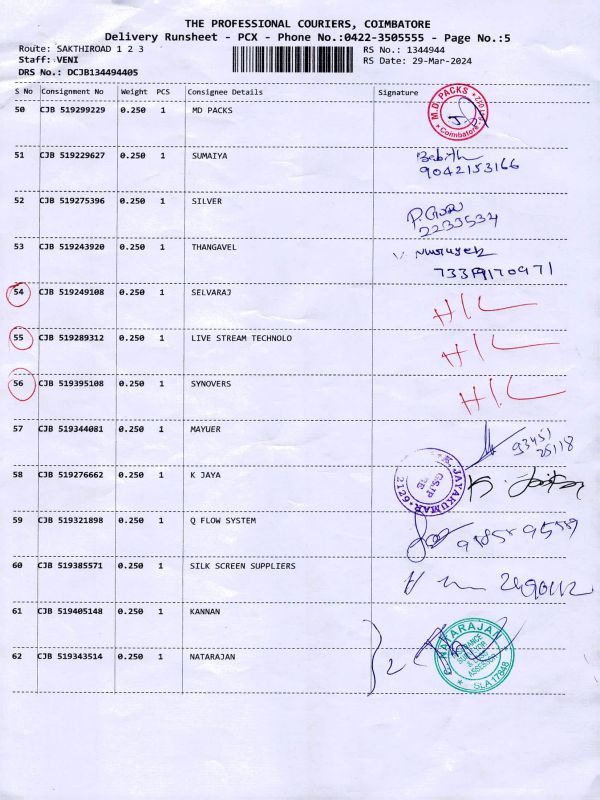 THE PROFESSIONAL COURIERS, COIMBATORE
Delivery Runsheet - PCX - Phone No.:0422-3505555 - Page No.:5
Route: SAKTHIROAD 1 2 3 RS No.: 1344944
Staff: VENI RS Date: 29-Mar-2024
DRS No.: DCJB134494405
S No Consignment No Weight PCS Consignee Details Signature
50 CJB 519299229 0.250 1 MD PACKS M.D. PACKS Coimbatore
51 CJB 519229627 0.250 1 SUMAIYA
9042153166
52 CJB 519275396 0.250 1 SILVER
2233534
53 CJB 519243920 0.250 1 THANGAVEL
54 CJB 519249108 0.250 1 SELVARAJ
55 CJB 519289312 0.250 1 LIVE STREAM TECHNOLO
56 CJB 519395108 0.250 1 SYNOVERS
57 CJB 519344081 0.250 1 MAYUER 93451
25118
58 CJB 519276662 0.250 1 K JAYA JAYAKUMAR 2129
59 CJB 519321898 0.250 1 Q FLOW SYSTEM
60 CJB 519385571 0.250 1 SILK SCREEN SUPPLIERS
61 CJB 519405148 0.250 1 KANNAN
62 CJB 519343514 0.250 1 NATARAJAN 2 NATARAJAN SLA 17848